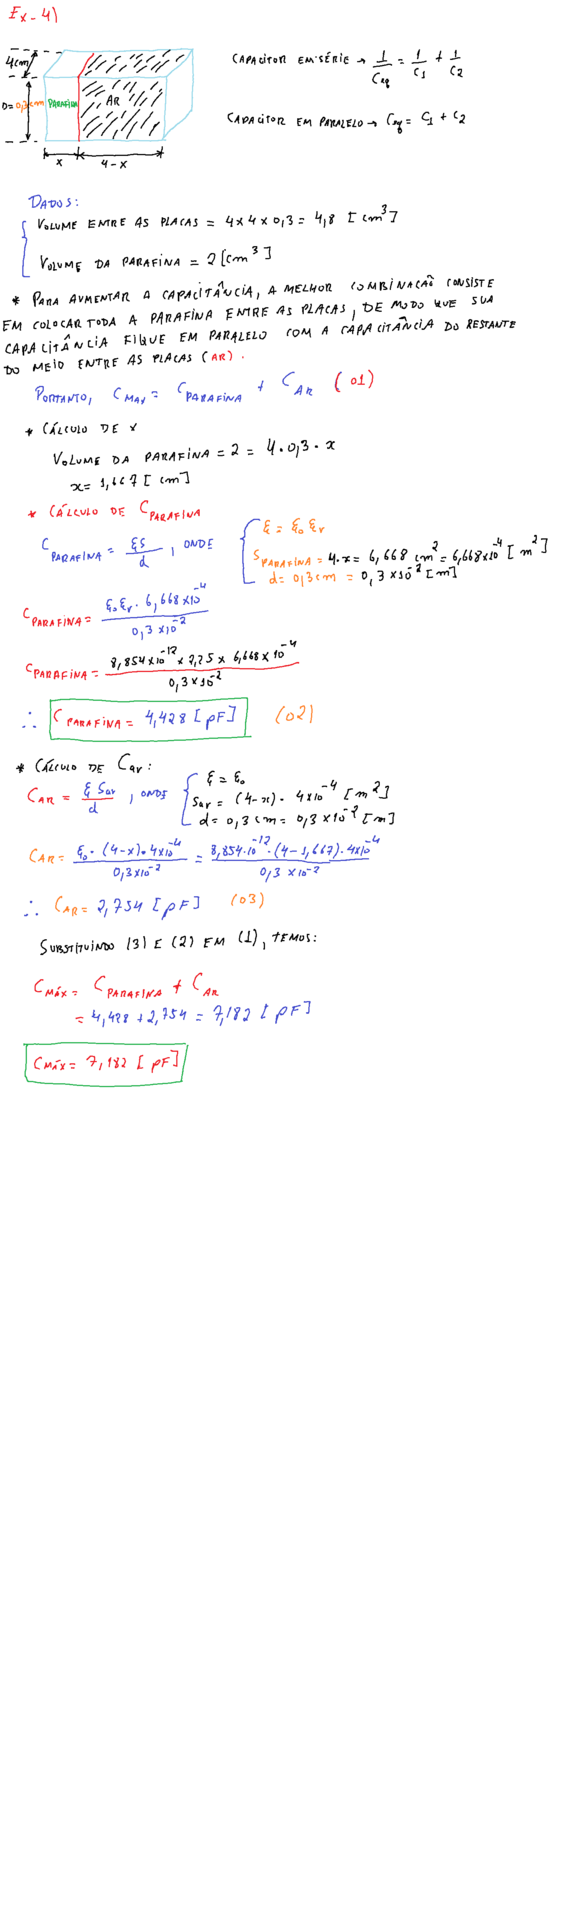 Ex-4)
4cm
D=0,3cm
PARAFINA
AR
x
4-x
CAPACITOR EM SÉRIE → 1/Ceq = 1/C1 + 1/C2
CAPACITOR EM PARALELO → Ceq = C1 + C2
DADOS:
VOLUME ENTRE AS PLACAS = 4x4x0,3 = 4,8 [cm³]
VOLUME DA PARAFINA = 2 [cm³]
* PARA AUMENTAR A CAPACITÂNCIA, A MELHOR COMBINACAÕ CONSISTE
EM COLOCAR TODA A PARAFINA ENTRE AS PLACAS, DE MODO QUE SUA
CAPACITÂNCIA FIQUE EM PARALELO COM A CAPACITÂNCIA DO RESTANTE
DO MEIO ENTRE AS PLACAS (AR).
PORTANTO, CMAX = CPARAFINA + CAR (01)
* CÁLCULO DE X
VOLUME DA PARAFINA = 2 = 4.0,3.x
x = 1,667 [cm]
* CÁLCULO DE CPARAFINA
CPARAFINA = ξS/d, ONDE
ξ = ξ0 ξr
SPARAFINA = 4.x = 6,668 cm² = 6,668x10⁻⁴ [m²]
d = 0,3cm = 0,3x10⁻² [m]
CPARAFINA = ξ0 ξr . 6,668x10⁻⁴ / 0,3x10⁻²
CPARAFINA = 8,854x10⁻¹² x 2,25 x 6,668x10⁻⁴ / 0,3x10⁻²
∴ CPARAFINA = 4,428 [pF] (02)
* CÁLCULO DE Car:
CAR = ξ Sar/d, ONDE
ξ = ξ0
Sar = (4-x). 4x10⁻⁴ [m²]
d = 0,3cm = 0,3x10⁻² [m]
CAR = ξ0.(4-x).4x10⁻⁴ / 0,3x10⁻² = 8,854.10⁻¹².(4-1,667).4x10⁻⁴ / 0,3x10⁻²
∴ CAR = 2,754 [pF] (03)
SUBSTITUINDO (3) E (2) EM (1), TEMOS:
CMÁX = CPARAFINA + CAR
= 4,428 + 2,754 = 7,182 [pF]
CMÁX = 7,182 [pF]